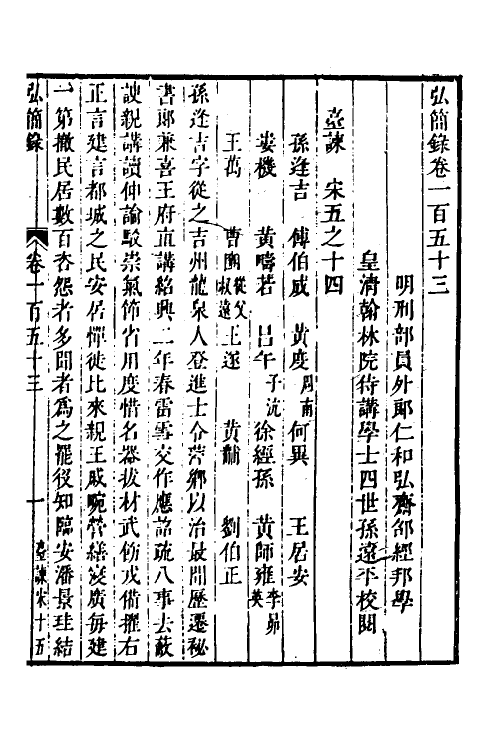 弘簡錄卷一百五十三
明刑部員外郎仁和弘齋邵經邦學
皇清翰林院侍講學士四世孫遠平校閱
臺諫 宋五之十四
孫逢吉 傅伯成 黃度周南 何異 王居安
婁機 黃疇若 呂午子沆 徐經孫 黃師雍李昴英
王萬 曹豳從父叔遠 王遂 黃黼 劉伯正
孫逢吉字從之吉州龍泉人登進士令萍鄉以治最聞歷遷秘
書郎兼喜王府直講紹興二年春雷雪交作應詔疏八事去蔽
諛親講讀伸論駁崇氣節省用度惜名器拔材武飭戎備擢右
正言建言都城之民安居憚徙比來親王戚畹營繕寖廣每建
一第撤民居數百咨怨者多聞者為之罷役知臨安潘景珪結
弘簡錄 卷一百五十三 一 臺諫宋十五